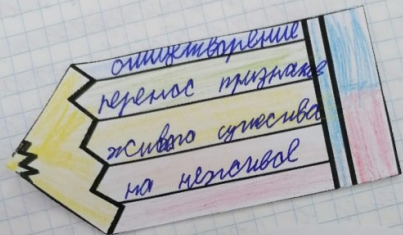 олицетворение
перенос признаков
живого существа
на неживое